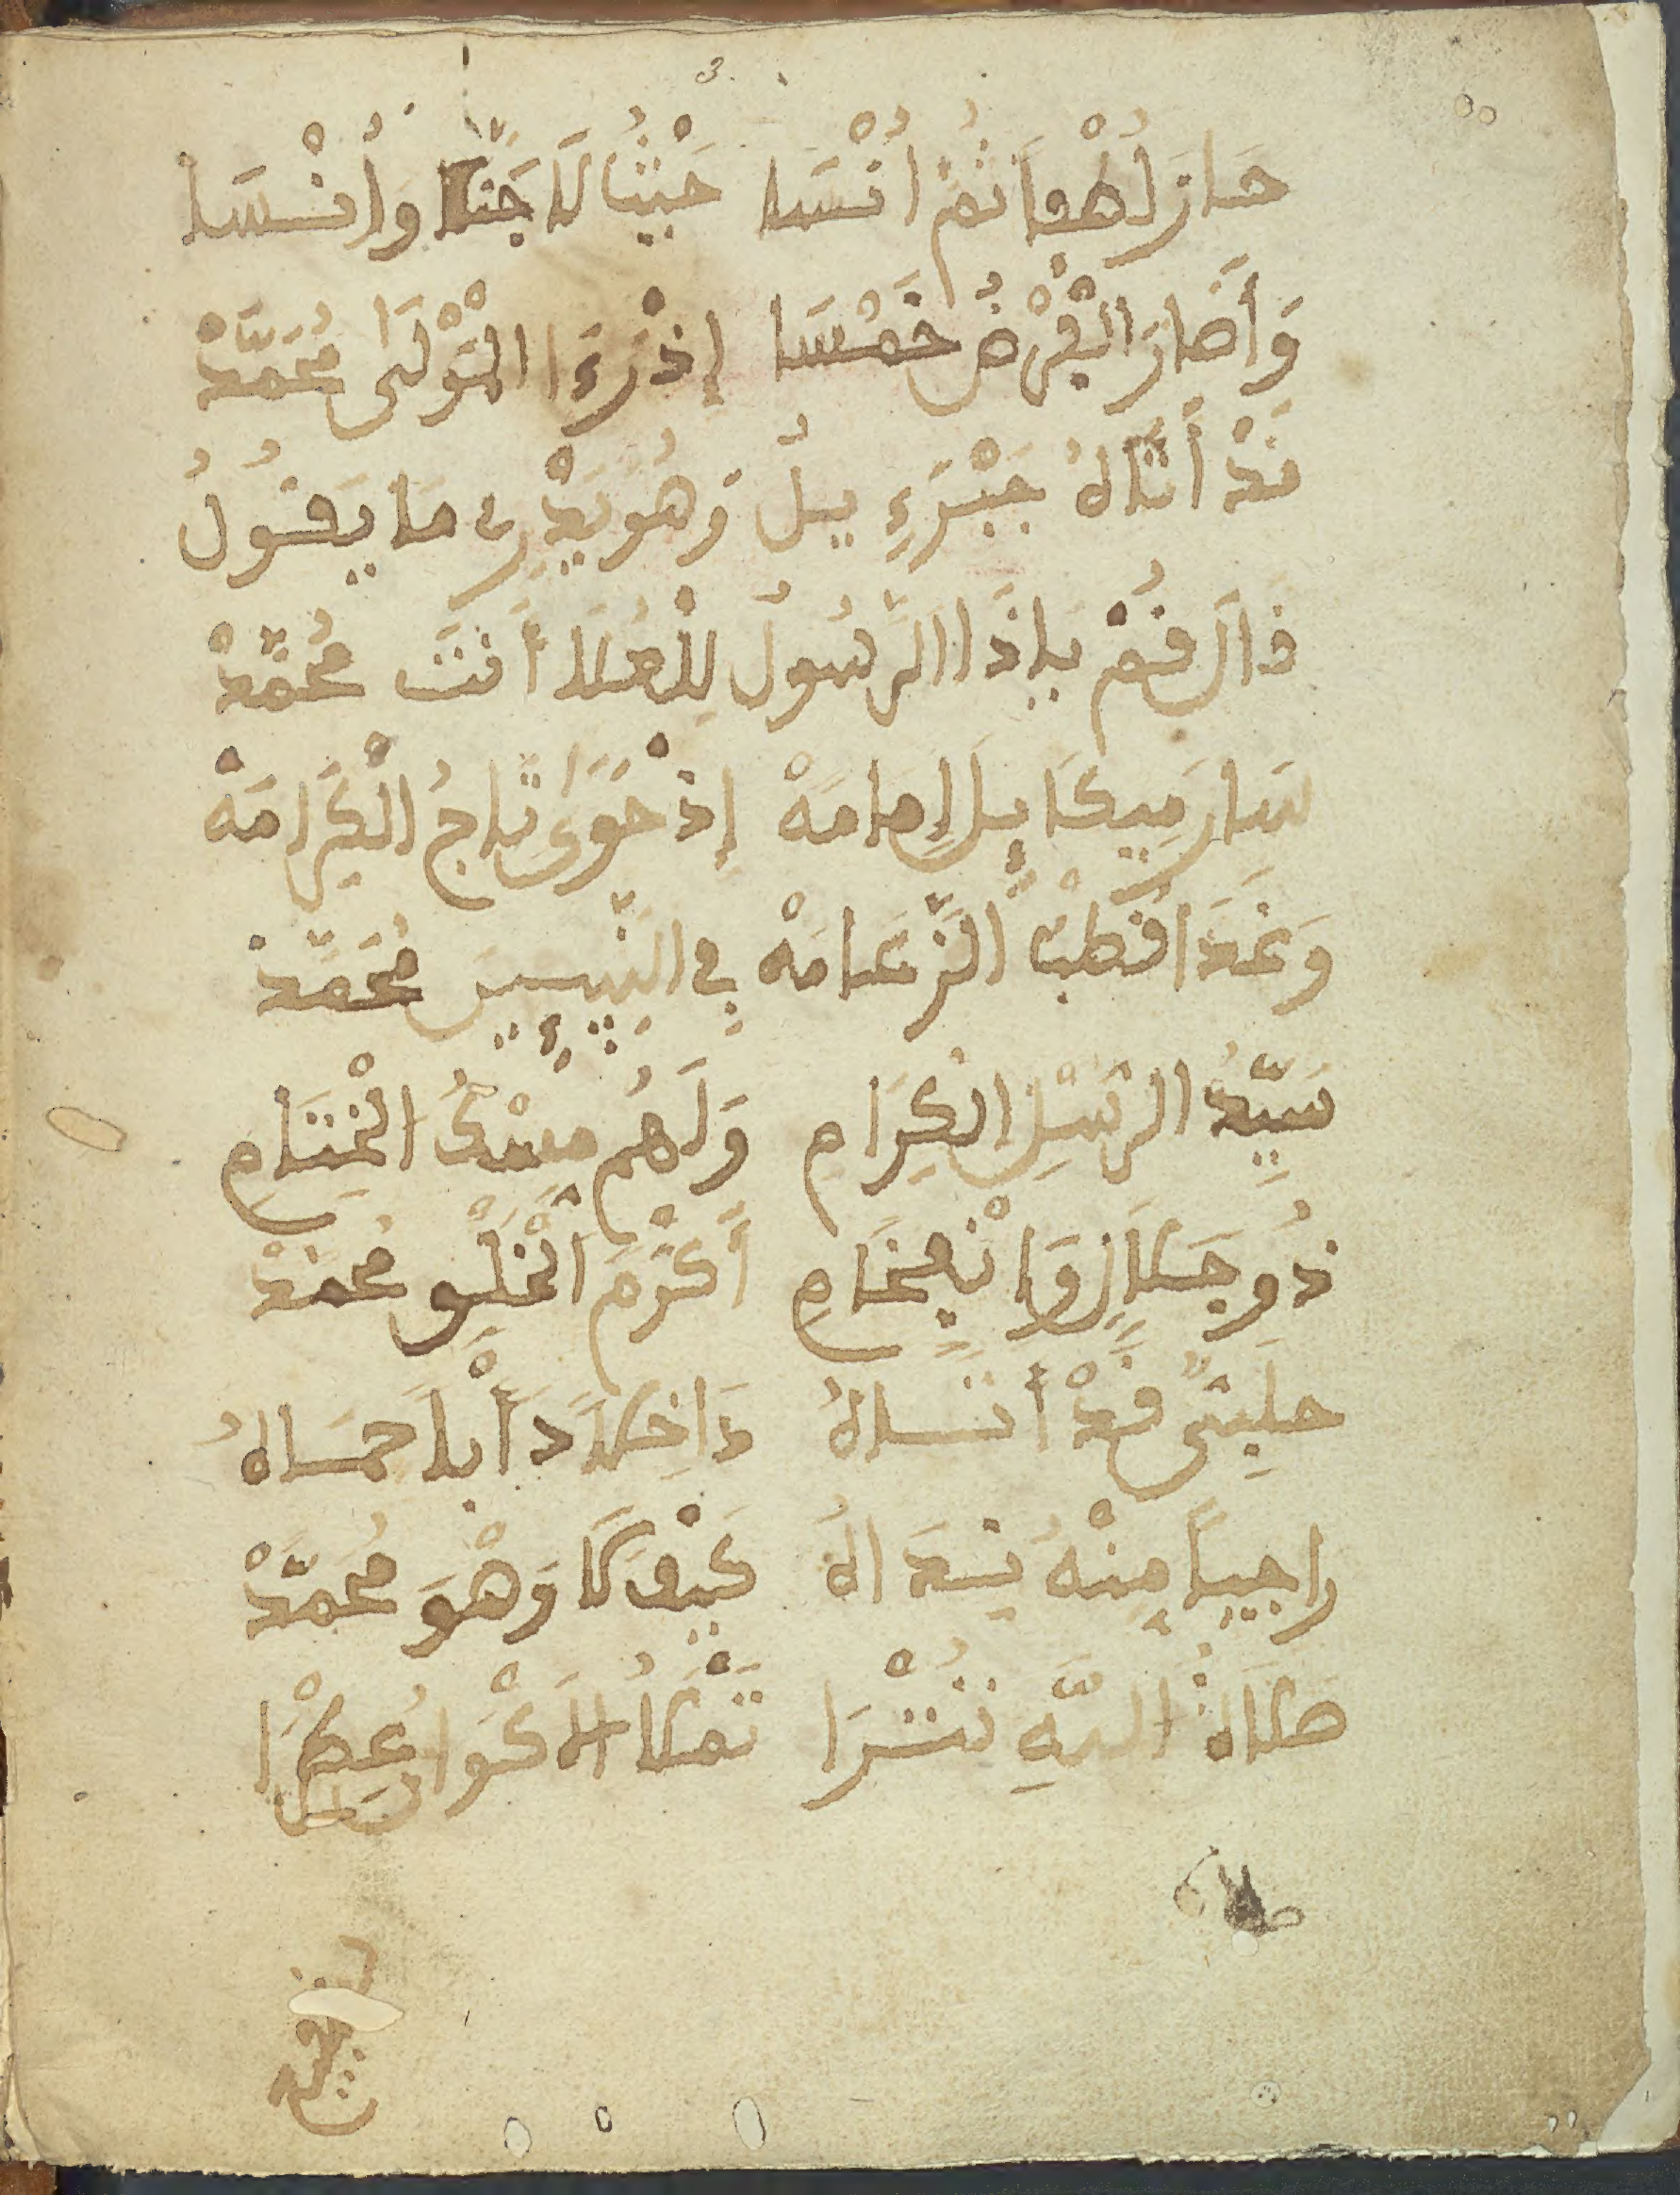 حَازَ لُطْفاً ثُمَّ أُنْسَا حَيْثُ لَا جَنّاً وَأُنْسَا
وَأَصَارَ الْفَرْضَ خَمْسَا إِذْ رَءَا الْمَوْلَى مُحَمَّدْ
قَدْ أَتَاهُ جَبْرَءِيلُ وَهُوَ يَدْرِي مَا يَقُولُ
فَالَ قُمْ يَا ذَا الرَّسُولُ لِلْعُلَا أَنْتَ مُحَمَّدْ
سَارَ مِيكَايِلَ إِمَامَهْ إِذْ حَوَى تَاجُ الْكَرَامَهْ
وَغَدَا قُطْبُ الزَّعَامَهْ فِي النَّبِيِينَ مُحَمَّدْ
سَيِّدُ الرُّسْلِ الْكِرَامِ وَلَهُمْ مِسْكُ الْخِتَامِ
ذُو جَلَالٍ وَ أَكْرَمَ الْخَلْقِ مُحَمَّدْ
قَدْ أَتَاهُ دَاخِلاً حِمَاهُ
رَاجِياً مِنْهُ نَدَاهُ كَيْفَ لَا وَهْوَ مُحَمَّدْ
صَلَاةُ اللَّهِ تَتْرَا تَمْلَأُ الْأَكْوَانَ عِطْرَا